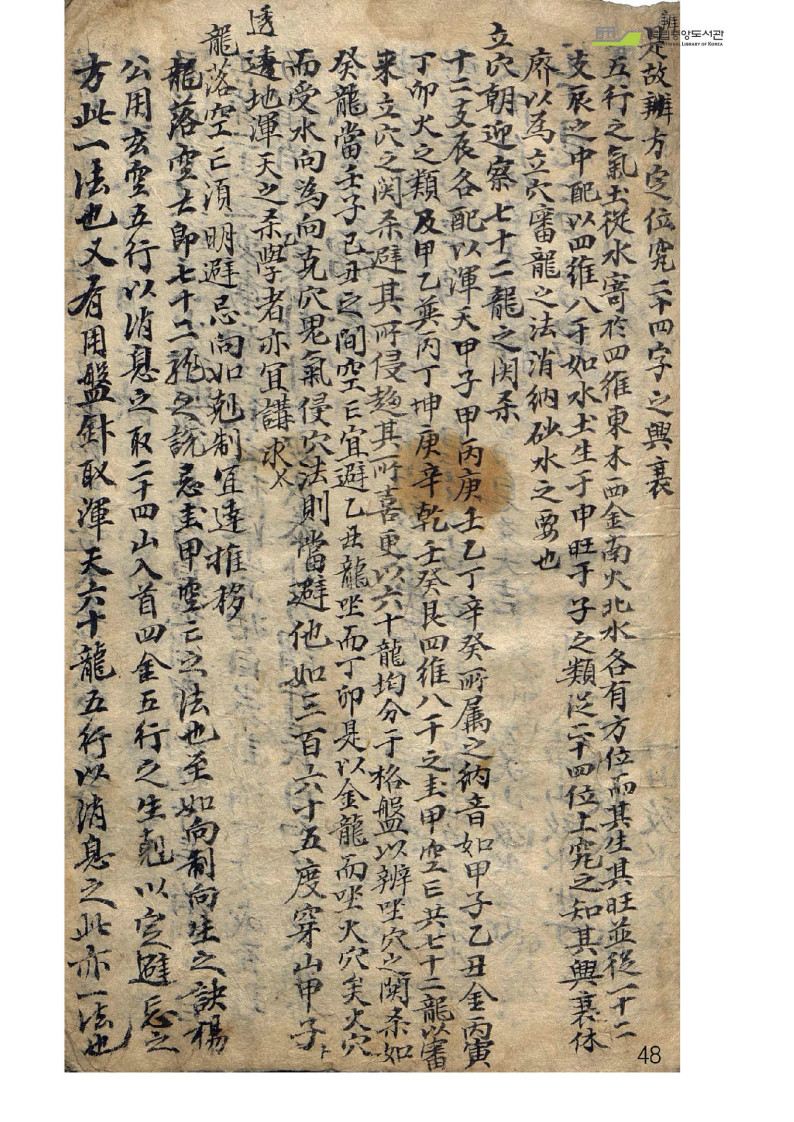 是故辨方定位究二十四字之興衰
辨
五行之氣土從水寄於四維東木西金南火北水各有方位而其生其旺並從一十二
支辰之中配以四維八干如水土生于申旺于子之類從二十四位上究之知其興衰休
廢以為立穴審龍之法消納砂水之要也
立穴朝迎察七十二龍之関杀
十二支辰各配以渾天甲子甲丙庚壬乙丁辛癸所属之納音如甲子乙丑金丙寅
丁卯火之類及甲乙巽丙丁坤庚辛乾壬癸艮四維八干之圭甲空亡共七十二龍以審
来立穴之関杀避其所侵趨其所喜更以六十龍均分于格盤以辨坐穴之関杀如
癸龍當壬子己丑之間空亡宜避乙丑龍坐而丁卯是以金龍而坐火穴矣火穴
而受水向為向克穴鬼氣侵穴法則當避他如三百六十五度穿山甲子
透
透地渾天之杀學者亦宜講求
龍落空亡須明避忌向如剋制宜速推移
龍落空亡即七十二龍之說忌圭甲空亡之法也至如向制向生之訣楊
公用玄空五行以消息之取二十四山入首四金五行之生剋以定避忌之
方此一法也又有用盤針取渾天六十龍五行以消息之此亦一法也
국립중앙도서관
NATIONAL LIBRARY OF KOREA
48